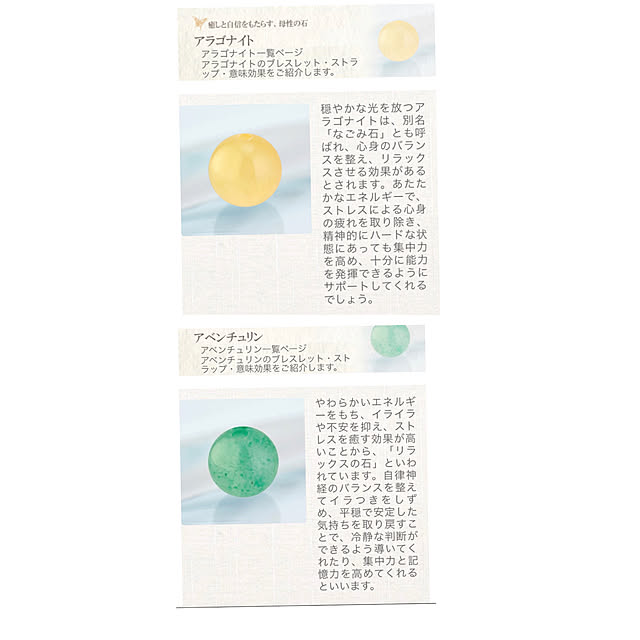 癒しと自信をもたらす、母性の石
アラゴナイト
アラゴナイト一覧ページ
アラゴナイトのブレスレット・ストラ
ップ・意味効果をご紹介します。
穏やかな光を放つア
ラゴナイトは、別名
「なごみ石」とも呼
ばれ、心身のバラン
スを整え、リラック
スさせる効果がある
とされます。あたた
かなエネルギーで、
ストレスによる心身
の疲れを取り除き、
精神的にハードな状
態にあっても集中力
を高め、十分に能力
を発揮できるように
サポートしてくれる
でしょう。
アベンチュリン
アベンチュリン一覧ページ
アベンチュリンのブレスレット・スト
ラップ・意味効果をご紹介します。
やわらかいエネルギ
ーをもち、イライラ
や不安を抑え、スト
レスを癒す効果が高
いことから、「リラ
ックスの石」といわ
れています。自律神
経のバランスを整え
てイラつきをしず
め、平穏で安定した
気持ちを取り戻すこ
とで、冷静な判断が
できるよう導いてく
れたり、集中力と記
憶力を高めてくれる
といいます。